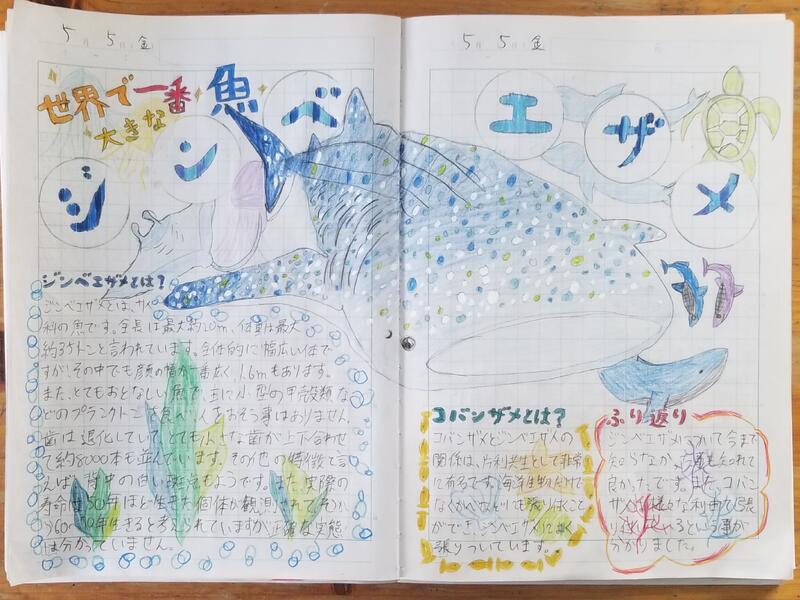 5月5日(金)
世界で一番
大きな
魚
ジンベエザメ
ジンベエザメとは?
ジンベエザメとは、サメ
科の魚です。全長は最大約20m、体重は最大
約35トンと言われています。全体的に幅広い体で
すが、その中でも顔の幅が一番広く、1.6mもあります。
また、とてもおとなしい魚で、主に小型の甲殻類な
どのプランクトンを食べ、人をおそう事はありません。
歯は退化していて、とても小さな歯が上下合わせ
て約8000本も並んでいます。その他の特徴と言
えば、背中の白い斑点もようです。また、実際の
寿命は50年ほど生きた個体が観測されており
60 年生きると考えられていますが正確な実態
は分かっていません。
5月5日(金)
コバンザメとは?
コバンザメとジンベエザメの
関係は、片利共生として非常
に有名です。海洋生物だけで
なくかべなどにも張りつくこと
ができ、ジンベエザメによく
張りついています。
ふり返り
ジンベエザメについて今まで
知らなかった 知れて
良かったです。また、コバン
ザメは様々な利由で張
るという事が
分かりました。